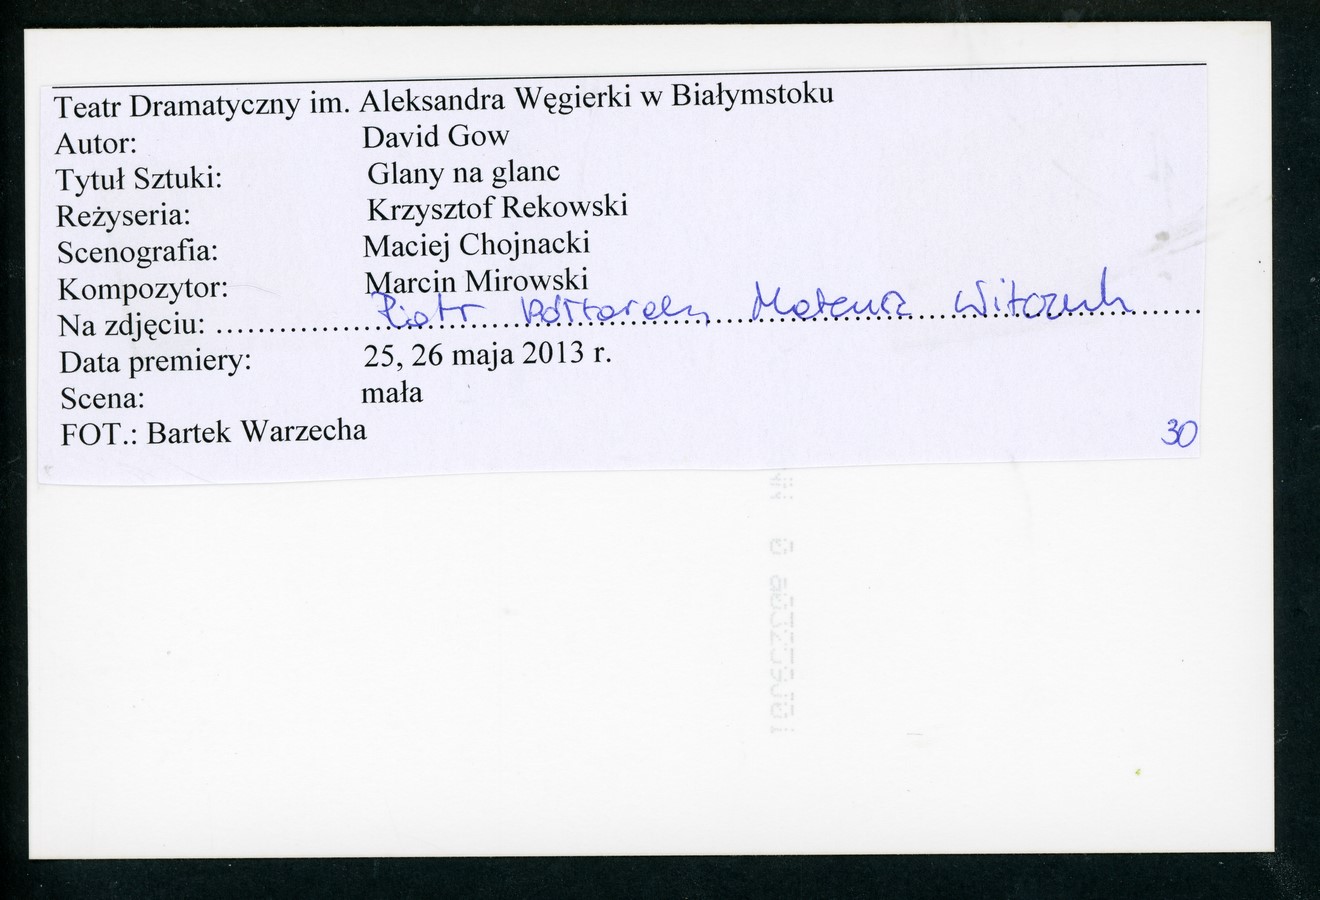 Teatr Dramatyczny im. Aleksandra Węgierki w Białymstoku
Autor: David Gow
Tytuł Sztuki: Glany na glanc
Reżyseria: Krzysztof Rekowski
Scenografia: Maciej Chojnacki
Kompozytor: Marcin Mirowski
Na zdjęciu: Piotr Półtorak, Mateusz Witczuk
Data premiery: 25, 26 maja 2013 r.
Scena: mała
FOT.: Bartek Warzecha
30